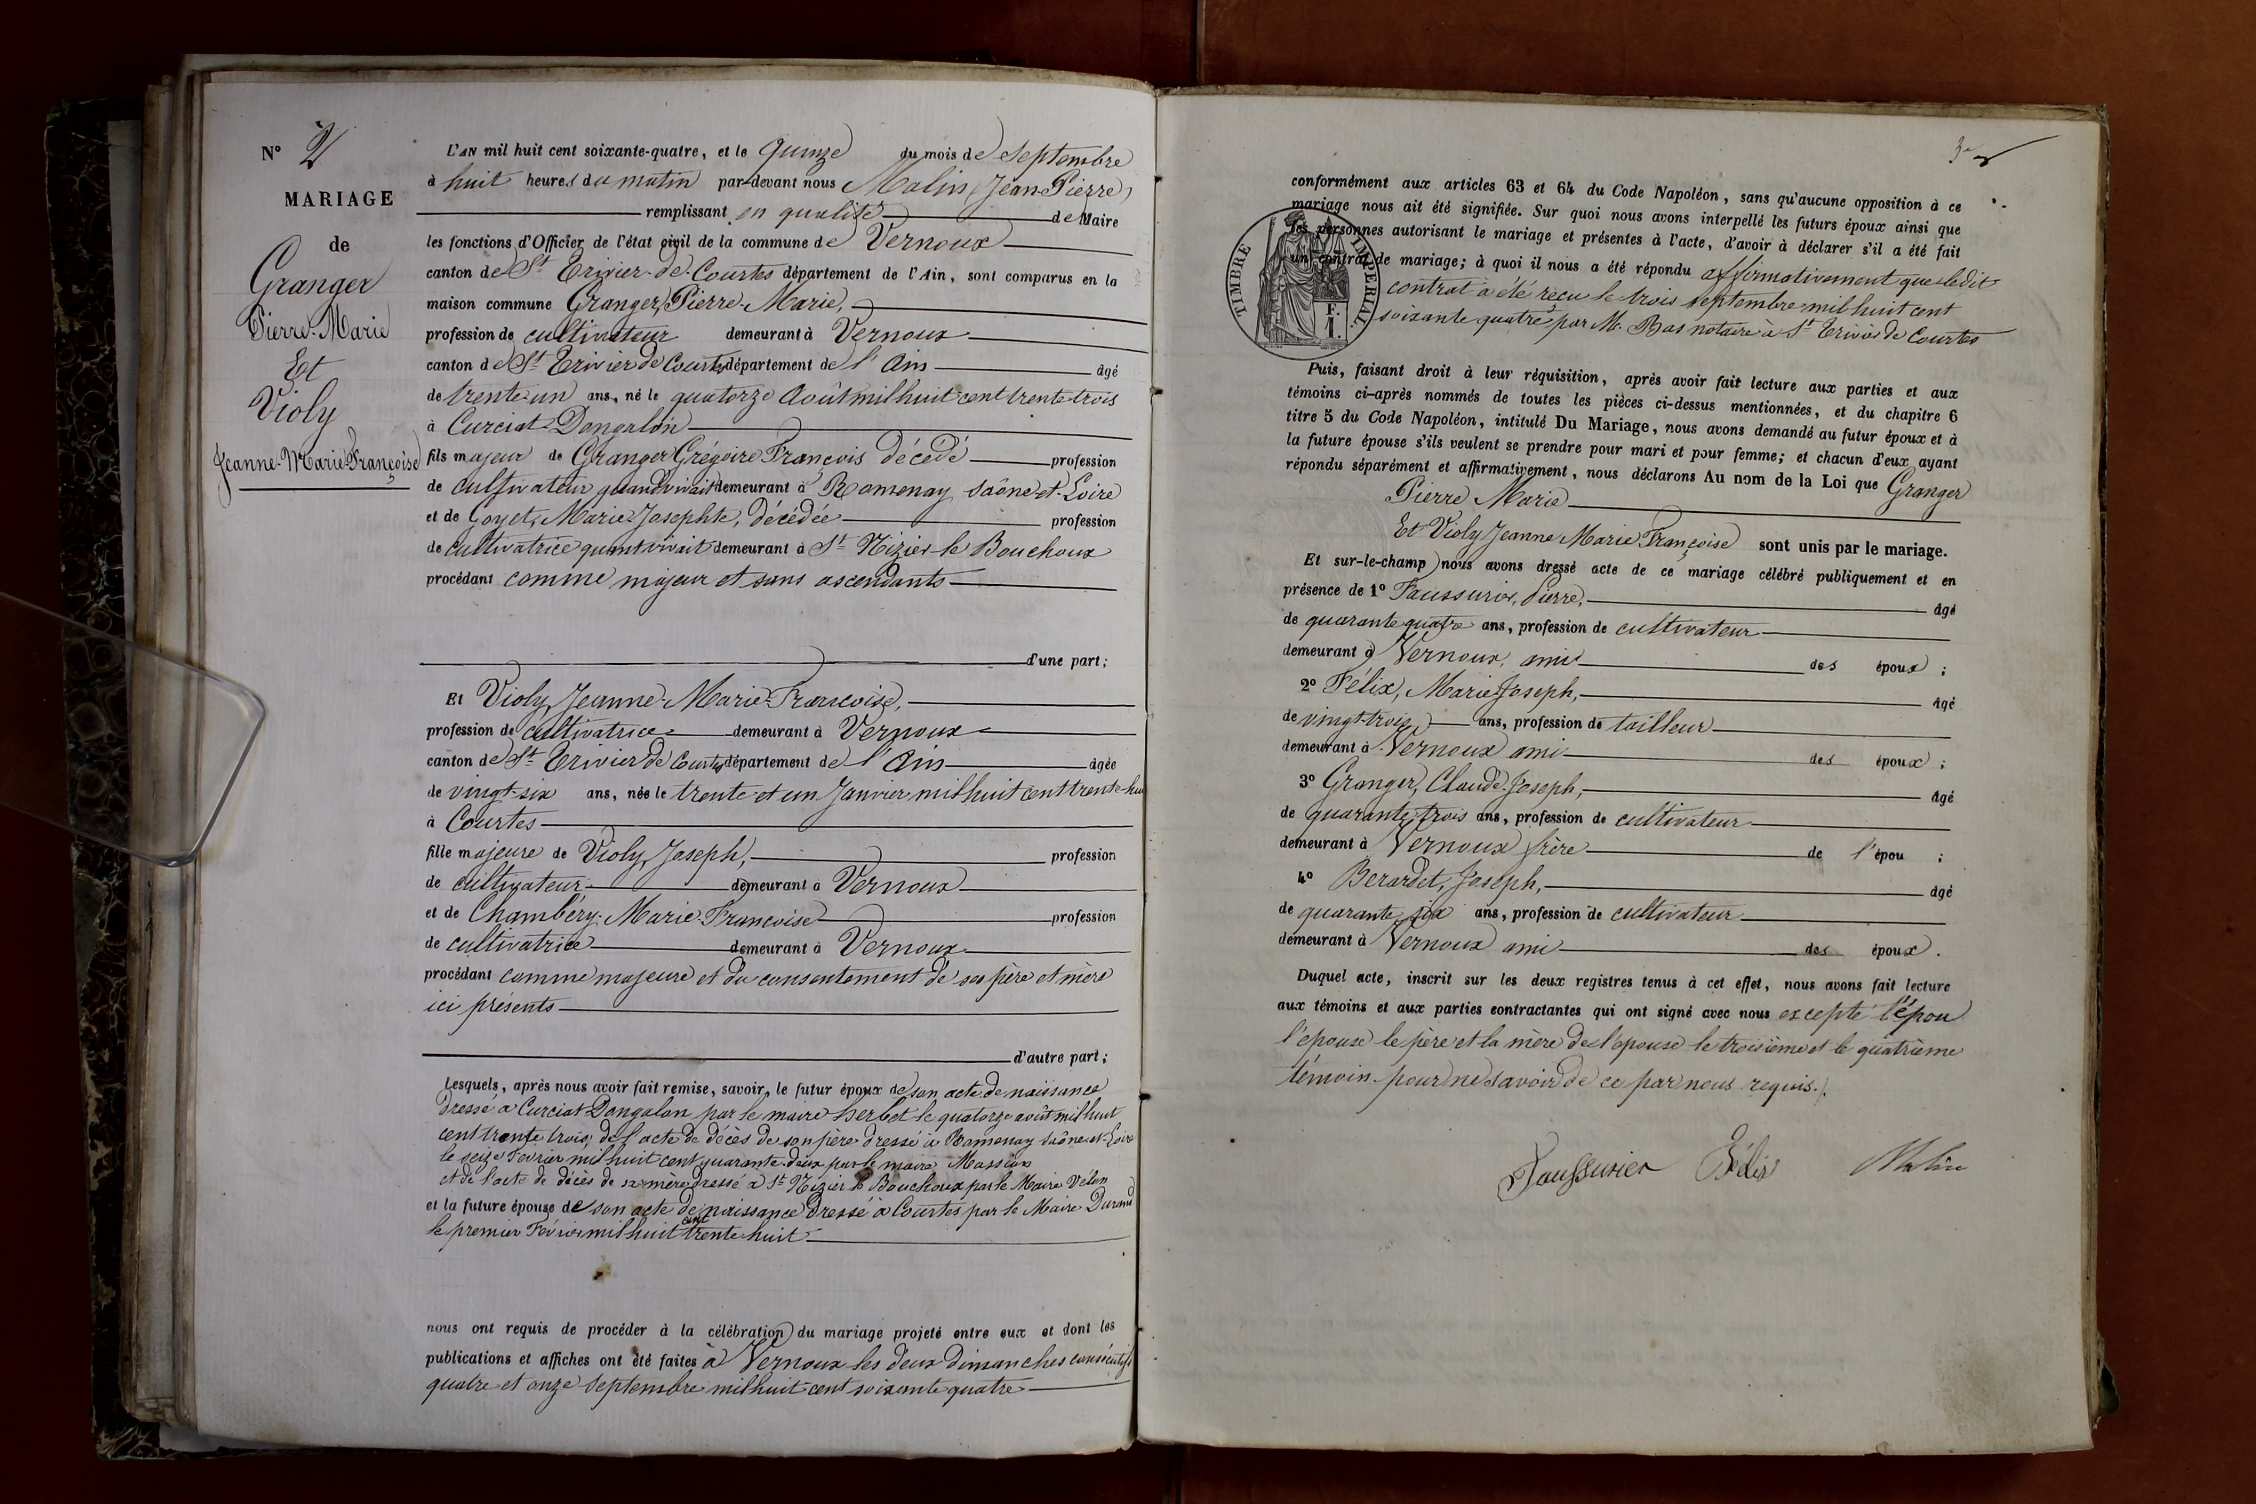 N° 2
MARIAGE
de
Granger
Pierre-Marie
Et
Violy
Jeanne-Marie-Françoise
L'AN mil huit cent soixante-quatre, et le quinze du mois de septembre
à huit heures du matin par-devant nous Malin (Jean Pierre)
remplissant en qualité de Maire
les fonctions d'Officier de l'état civil de la commune de Vernoux
canton de St Trivier-de-Courtes département de l'Ain, sont comparus en la
maison commune Granger, Pierre-Marie,
profession de cultivateur demeurant à Vernoux
canton de St Trivier de Courtes département de l'Ain âgé
de trente-un ans, né le quatorze Août mil huit cent trente-trois
à Curciat-Dongalon
fils majeur de Granger Grégoire François décédé profession
de cultivateur quand vivait demeurant à Romenay Saône-et-Loire
et de Goyet, Marie-Josephte, décédée profession
de cultivatrice quand vivait demeurant à St Nizier-le Bouchoux
procédant comme majeur et sans ascendants
d'une part;
Et Violy, Jeanne-Marie-Françoise,
profession de cultivatrice demeurant à Vernoux
canton de St Trivier de Courtes département de l'Ain âgée
de vingt-six ans, née le trente et un Janvier mil huit cent trente-hui
à Courtes
fille majeure de Violy, Joseph, profession
de cultivateur demeurant à Vernoux
et de Chambéry, Marie-Françoise profession
de cultivatrice demeurant à Vernoux
procédant comme majeure et du consentement de ses père et mère
ici présents
d'autre part;
Lesquels, après nous avoir fait remise, savoir, le futur époux de son acte de naissance
dressé à Curciat Dongalon par le maire herbet le quatorze août mil huit
cent trente trois, de l'acte de décès de son père dressé à Romenay Saône-et-Loire
le seize Fevrier mil huit cent quarante-deux par le maire
et de l'acte de décès de sa mère dressé à St Nizier le Bouchoux par le Maire Vélon
et la future épouse de son acte de naissance dressé à Courtes par le Maire Durand
le premier Février mil huit cent trente huit
nous ont requis de procéder à la célébration du mariage projeté entre eux et dont les
publications et affiches ont été faites à Vernoux les deux dimanches consécutifs
quatre et onze Septembre mil huit cent soixante quatre
3
conformément aux articles 63 et 64 du Code Napoléon, sans qu'aucune opposition à ce
mariage nous ait été signifiée. Sur quoi nous avons interpellé les futurs époux ainsi que
les personnes autorisant le mariage et présentes à l'acte, d'avoir à déclarer s'il a été fait
un contrat de mariage; à quoi il nous a été répondu affirmativement que ledit
contrat a été reçu le trois septembre mil huit cent
soixante quatre, par M. Bas notaire à St Trivier de Courtes
TIMBRE IMPERIAL.
1 F.
Puis, faisant droit à leur réquisition, après avoir fait lecture aux parties et aux
témoins ci-après nommés de toutes les pièces ci-dessus mentionnées, et du chapitre 6
titre 5 du Code Napoléon, intitulé Du Mariage, nous avons demandé au futur époux et à
la future épouse s'ils veulent se prendre pour mari et pour femme; et chacun d'eux ayant
répondu séparément et affirmativement, nous déclarons Au nom de la Loi que Granger
Pierre Marie
Et Violy Jeanne Marie Françoise sont unis par le mariage.
Et sur-le-champ nous avons dressé acte de ce mariage célébré publiquement et en
présence de 1° Faussurier, Pierre, âgé
de quarante quatre ans, profession de cultivateur
demeurant à Vernoux, ami des époux;
2° Félix, Marie Joseph, âgé
de vingt-trois ans, profession de tailleur
demeurant à Vernoux ami des époux;
3° Granger, Claude-Joseph, âgé
de quarante-trois ans, profession de cultivateur
demeurant à Vernoux frère de l'épou ;
4° Berardet, Joseph, âgé
de quarante six ans, profession de cultivateur
demeurant à Vernoux ami des époux.
Duquel acte, inscrit sur les deux registres tenus à cet effet, nous avons fait lecture
aux témoins et aux parties contractantes qui ont signé avec nous excepté l'épou
l'épouse le père et la mère de l'épouse le troisième et le quatrième
témoin pour ne savoir de ce par nous requis.
Faussurier Félix Malin